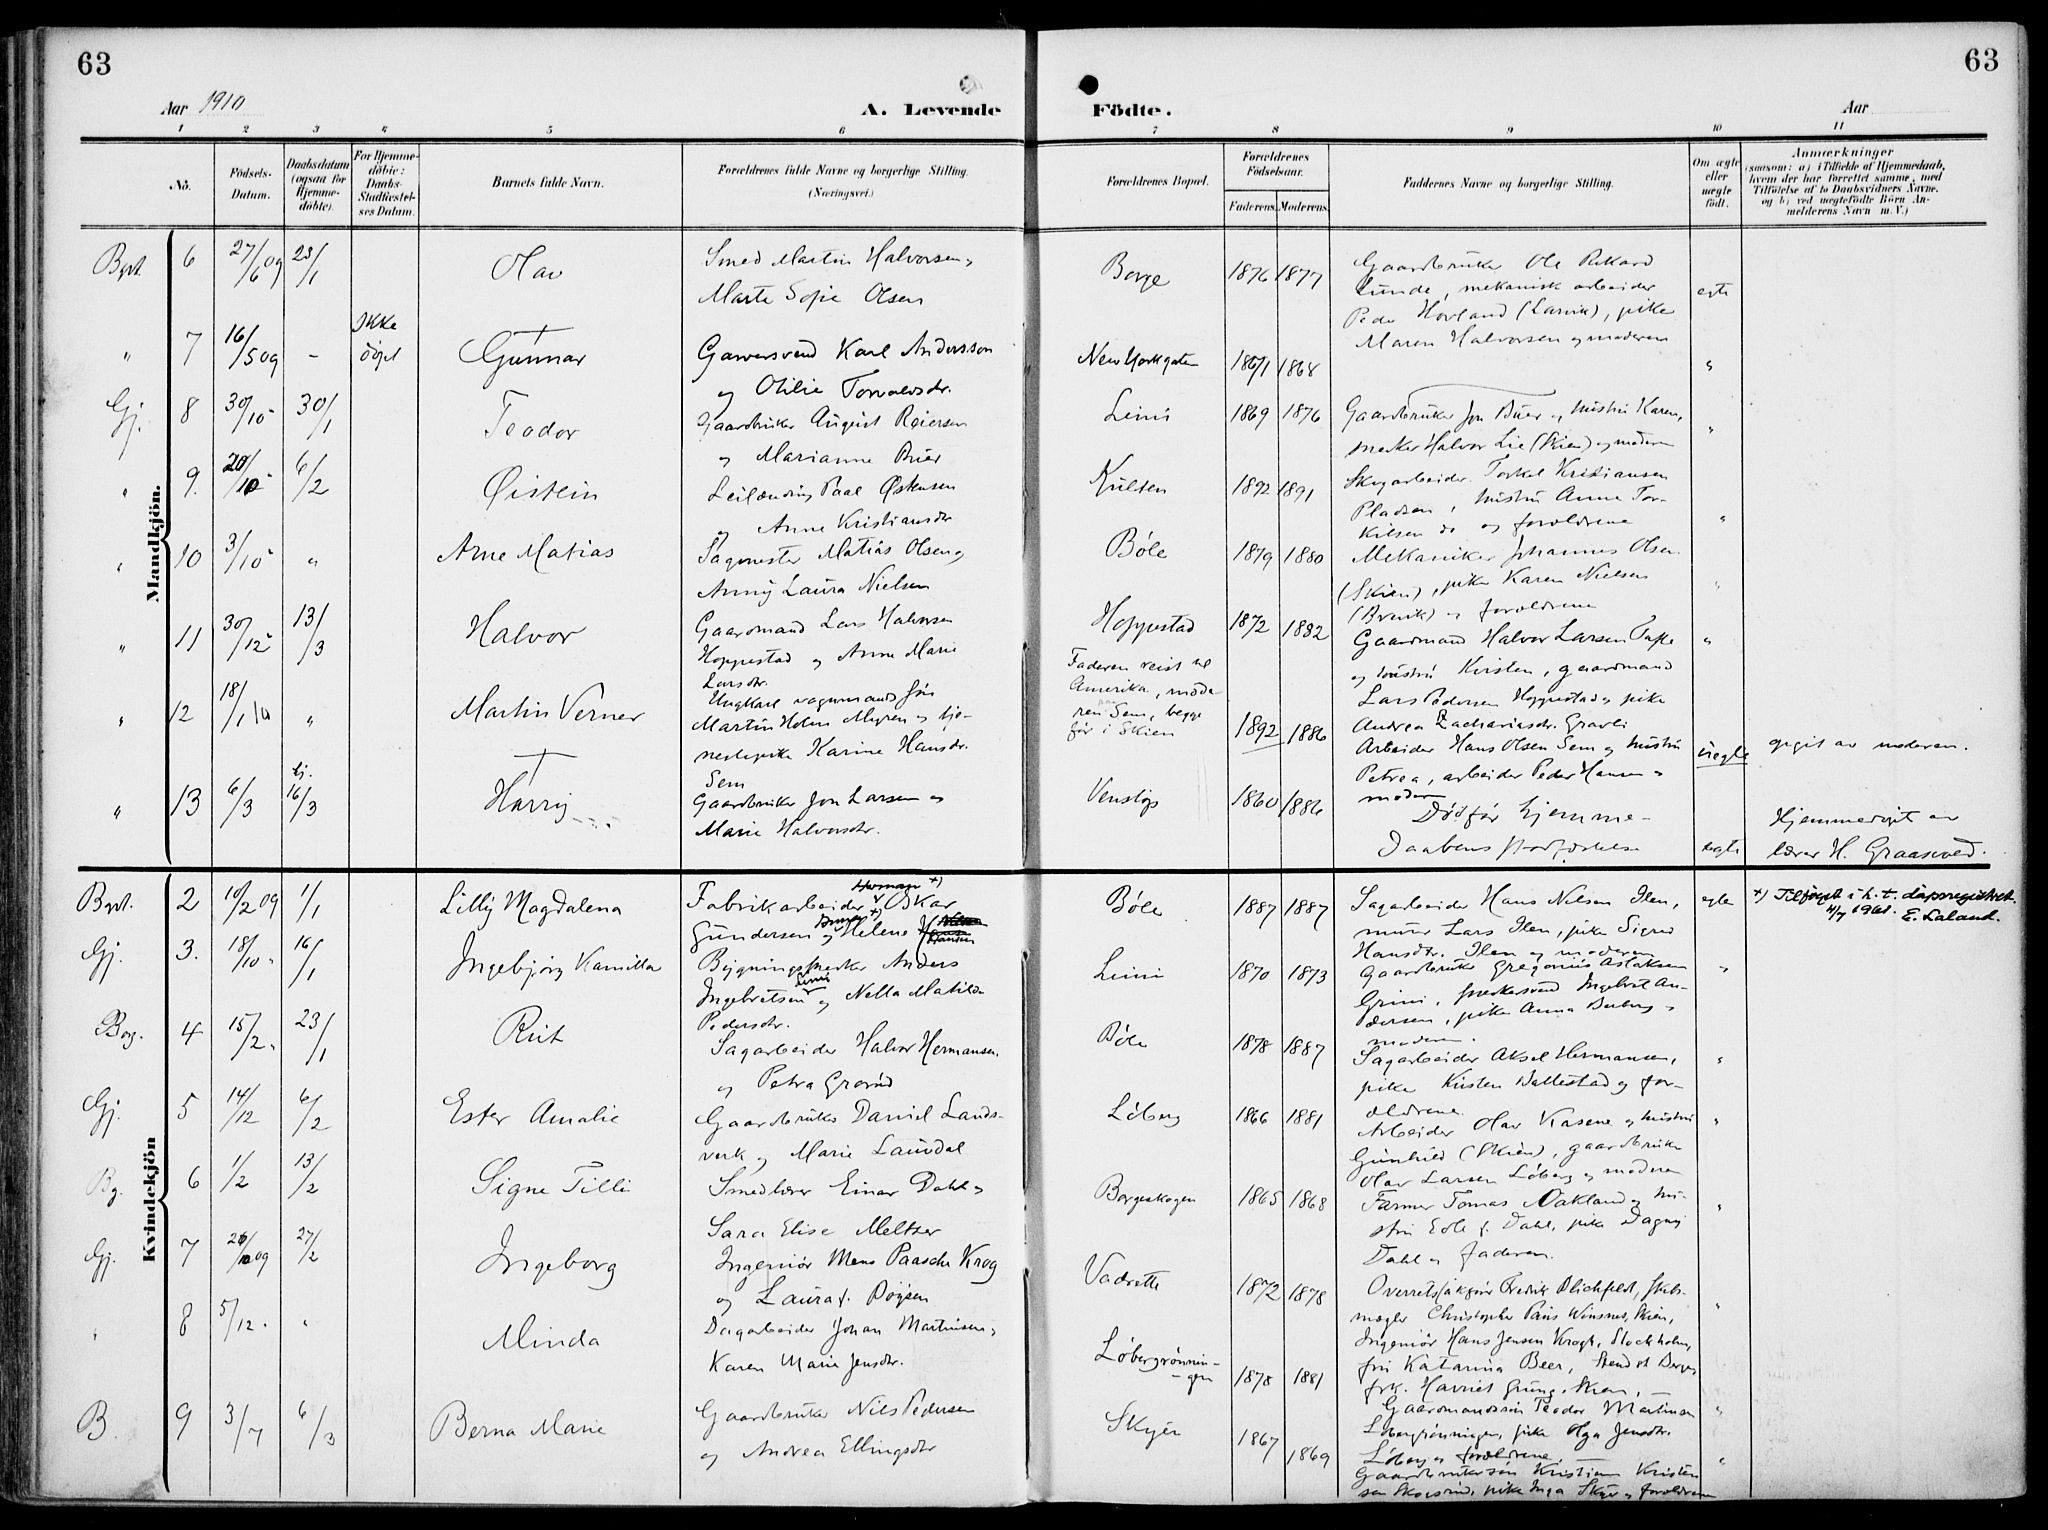 63
63
Aar 1910
A. Levende
Födte.
Aar
1 2 3 4 5 6 7 8 9 10 11
No.
Födsels-
Datum.
Daabsdatum
(ogsaa for
Hjemme-
döbte).
For Hjemme-
döbte:
Daabs-
Stadfæstel-
ses Datum.
Barnets fulde Navn.
Forældrenes fulde Navne og borgerlige Stilling.
(Næringsvei.)
Forældrenes Bopæl.
Forældrenes
Födselsaar.
Faderens. Moderens.
Faddernes Navne og borgerlige Stilling.
Om ægte
eller
uægte
födt.
Anmærkninger
(saasom: a) i Tilfælde af Hjemmedaab,
hvem der har forrettet samme, med
Tilföielse af to Daabsvidners Navne,
og b) ved uægtefödte Börn An-
melderens Navn m. V.)
Mandkjön.
6 27/6 09 23/1 Olav
Smed Martin Halvorsen,
Marte Sofie Olsen
Borge 1876 1877
Gaardbruker Ole Rikard
Lunde, mekanisk arbeider
Peder Hovland (Larvik), pike
Maren Halvorsen og moderen
egte
" 7 16/5 09 - Ikke døpt Gunnar
Garversvend Karl Andersson
og Otilie Torvaldsdr.
New Yorkgaten 1868 "
Gj. 8 30/10 - 30/1 Teodor
Gaardbruker August Reiersen
og Marianne Buer
Limi 1869 1876
Gaardbruker Jon Buer og hustru Karen,
snekker Halvor Lie (Skien) og moderen
"
" 9. 20/10 - 6/2 Øistein
Leilænding Paal Østensen
og Anne Kristiansdr
1892 1891
Torkel Kristiansen
Pladsen, hustru Anne Tor-
kilsen do og forældrene
"
" 10 3/10 - " Arne Matias
Sagmester Matias Olsen og
Anny Laura Nielsen
Bøle 1879 1880
Mekaniker Johannes Olsen
(Skien), pike Karen Nielsen
(Brevik) og forældrene
"
" 11 30/12 - 13/3 Halvor
Gaardmand Lars Halvorsen
Hoppestad og Anne Marie
Larsdr.
Hoppestad 1872 1882
Gaardmand Halvor Larsen
og hustru Kirsten, gaardmand
Lars Pedersen Hoppestad og pike
Andrea Zachariasdr. Gravli
"
" 12 18/1 10 " Martin Verner
Ungkarl vognmands søn
Martin Holm Myren og tje-
nestepike Karine Hansdr.
Sem
Faderen reist til
Amerika, mode
ren Sem, begge
før i Skien
1892 1886
Arbeider Hans Olsen Sem og hustru
Petrea, arbeider Peder Hansen og
moderen
uegte
opgit av moderen.
" 13 6/3 hj. 16/3 Harry
Gaardbruker Jon Larsen og
Marie Halvorsdr.
Venstøp 1860 1886
Død før hjemme-
daabens stadfæstelse
egte
Hjemmedøpt av
lærer H. Graasvold.
Kvindekjön
2 10/2 09 1/1 Lilly Magdalena
Fabrikarbeider Herman +) Oskar
Gundersen og +) Helene
Bøle 1887 1887
Sagarbeider Hans Nilsen Ilen,
murer Lars Ilen, pike Sigrid
Hansdtr. Ilen og moderen
egte
+) Tilføyet i h. t. dåpsregistret.
1961. E. Saland.
Gj. 3. 18/10 - 16/1 Ingebjørg Kamilla
Bygningssnekker Anders
Ingebretsen Limi og Nella Matilde
Pedersdtr.
Limi 1870 1873
Gaardbruker Gregorius Aslaksen
Grini, snekkersvend Ingebret An-
dersen, pike Anna
moderen.
"
Bog. 4 15/2 . 23/1 Rut
Sagarbeider Halvor Hermansen
og Petra Grorud
Bøle 1878 1887
Sagarbeider Aksel Hermansen,
pike Kirsten Ballestad og for-
ældrene.
"
Gj. 5 14/12 6/2 Ester Amalie
Gaardbruker Daniel Lands-
verk og Marie Laurdal
Løberg 1866 1881
Arbeider Olav Kasene og hustru
Gunhild (Skien), gaardbruker
Olav Larsen Løberg og moderen
"
Bg. 6 1/2 13/2 Signe Tilli
Smedlærer Einar Dahl og
Sara Elise Meltzer
Borgeskogen 1865 1868
Farmer Tomas Oakland og hu-
stru Edle f. Dahl, pike Dagny
Dahl og faderen.
"
Gj. 7 09 27/2 Ingeborg
Ingeniør Mens Paasche Krog
og Laura f. Bøysen
Vadrette 1872 1878
Overretssakfører Fredrik Blichfeldt, Skibs-
mægler Christopher Paus Winsnes, Skien,
Ingeniør Hans Jensen Krogh, Stockholm,
fru Katarina Beer, Bergen,
frk. Harriet Grung, Skien,
"
" 8 5/12 . " Minda
Dagarbeider Johan Martinsen og
Karen Marie Jensdtr.
Løbergrønnin-
-gen
1878 1881
Gaardmandssøn Teodor Martinsen
Løbergrønningen, pike Olga Jensdtr.
Løberg og forældrene
"
B. 9 3/7 6/3 Berna Marie
Gaardbruker Nils Pedersen
og Andrea Ellingsdtr
Skyer 1867 1869
Gaardbrukersøn Kristian Kristen
sen, pike Inga Skyer og forældrene
"